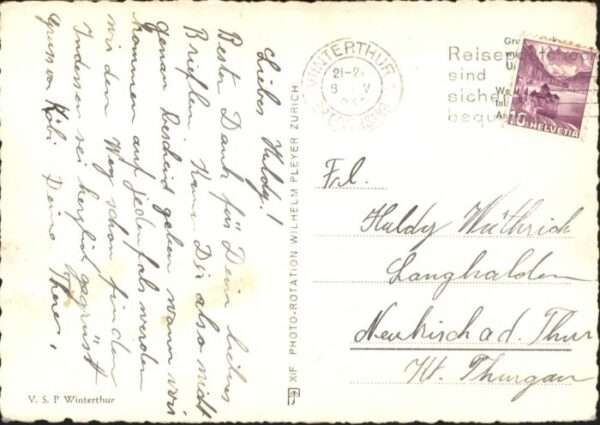 Liebes Huldy!
Besten Dank für Dein liebes
Brieflein. Kann Dir also nicht
genau Bescheid geben wann wir
kommen auf jedenfals werden
wir den Weg schon finden
Indessen sei herzlich gegrüsst
Gruss von Köbi Deine
V. S. P Winterthur
XIF PHOTO-ROTATION WILHELM PLEYER ZÜRICH
WINTERTHUR
21-2
Reisepostch
sind
sicher
bequ
10 HELVETIA
Frl.
Huldy Wüthrich
Langhalden
Neukirch a. d. Thur
Kt. Thurgau